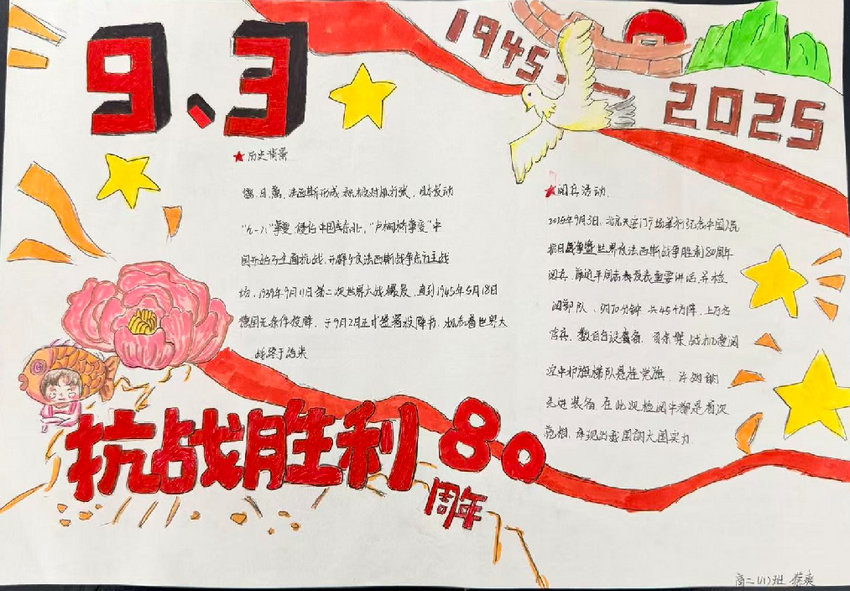 9.3
1945.—2025
★历史背景
德、日、意、法西斯形成
"九一八"事变 侵占中国东北,"卢沟桥事变"中
国开始了全面抗战,开辟了反法西斯战争东方主战
场,1939年9月1日第二次世界大战爆发,直到1945年5月18日
德国无条件投降,于9月2日正式签署投降书,标志着世界大
战终于结束
★阅兵活动
2025年9月3日,北京天安门广场举行纪念中国人民
抗日战争暨世界反法西斯战争胜利80周年
阅兵,同志发表重要讲话,并检
阅部队,约70分钟 共45个方阵,上万名
官兵、数百台设备
空中护旗梯队悬挂党旗,
先进装备 在此次检阅中都是首次
亮相,体现出我国的大国实力
抗战胜利80
周年
高二(1)班